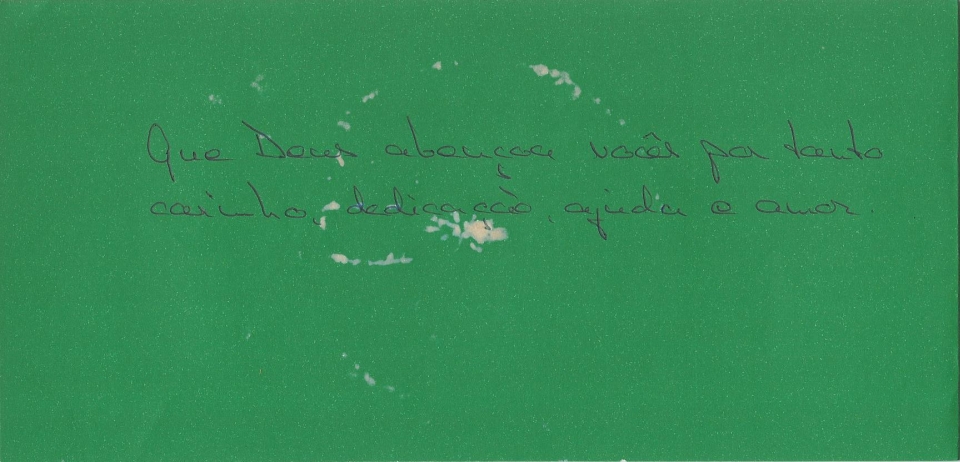 Que Deus abençoe vocês por tanto
carinho, dedicação, ajuda e amor.